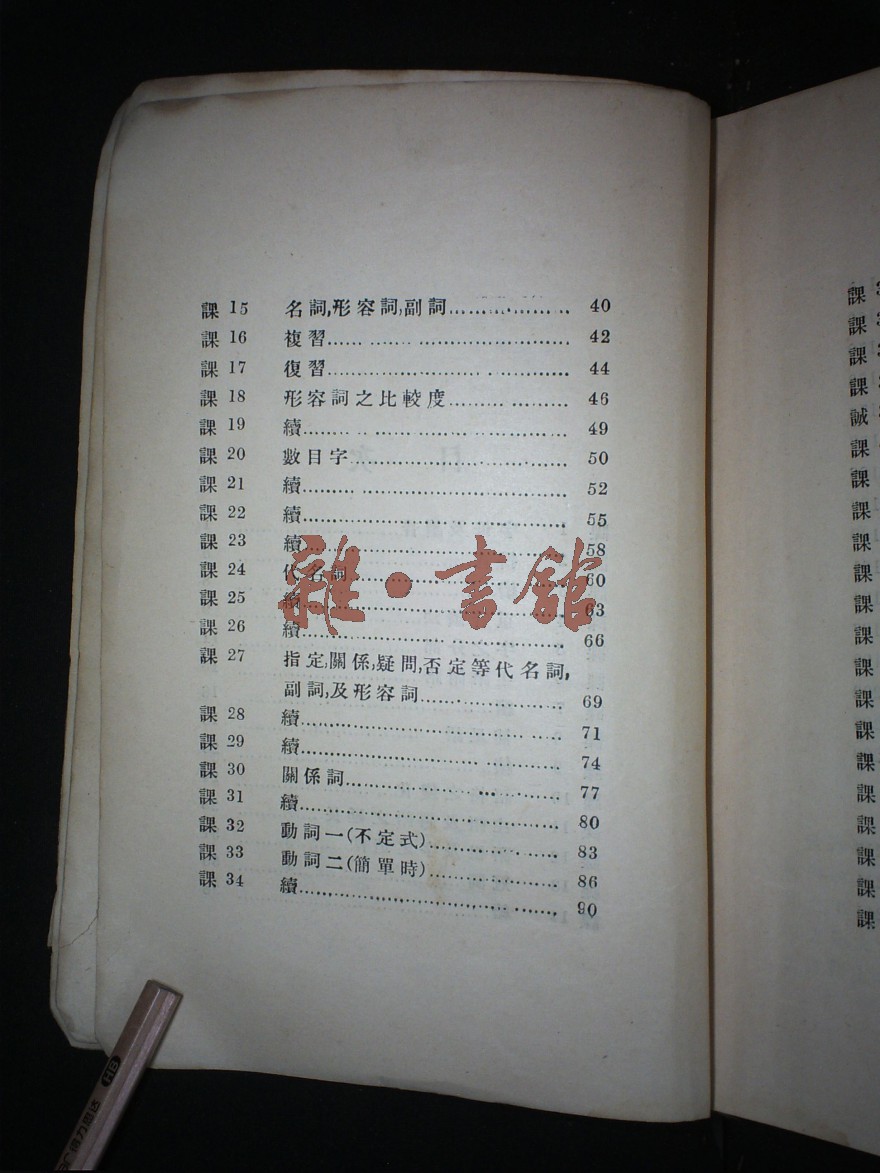 課 15 名詞,形容詞,副詞 40
課 16 複習 42
課 17 復習 44
課 18 形容詞之比較度 46
課 19 續 49
課 20 數目字 50
課 21 續 52
課 22 續 55
課 23 續 58
課 24 代名詞 60
課 25 續 63
課 26 續 66
課 27 指定,關係,疑問,否定等代名詞,
副詞,及形容詞 69
課 28 續 71
課 29 續 74
課 30 關係詞 77
課 31 續 80
課 32 動詞一(不定式) 83
課 33 動詞二(簡單時) 86
課 34 續 90
雜·書館
HB
課
課
課
課
誠
課
課
課
課
課
課
課
課
課
課
課
課
課
課
課
課